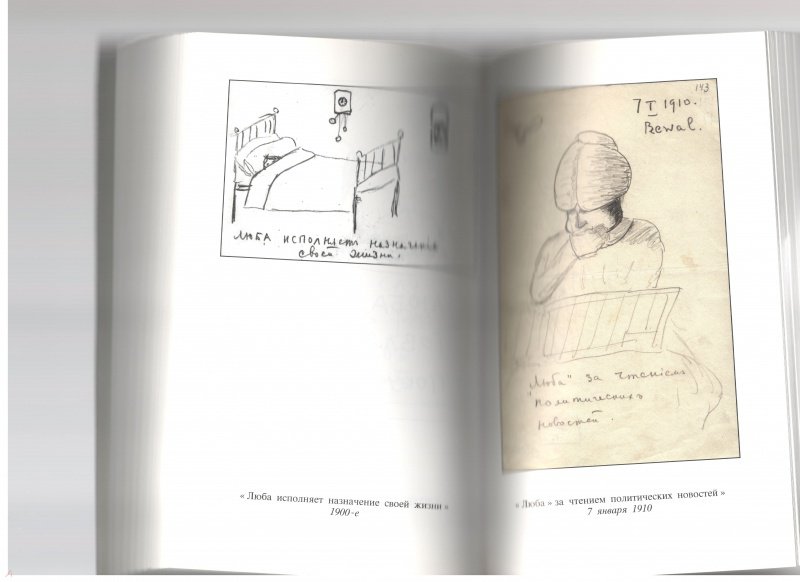 ЛЮБА ИСПОЛНЯЕТЪ НАЗНАЧЕНIЕ
СВОЕЙ ЖИЗНИ.
« Люба исполняет назначение своей жизни »
1900-е
143
7 I 1910.
Revaл.
„Люба“ за чтенiемъ
политическихъ
новостей.
« Люба » за чтением политических новостей »
7 января 1910